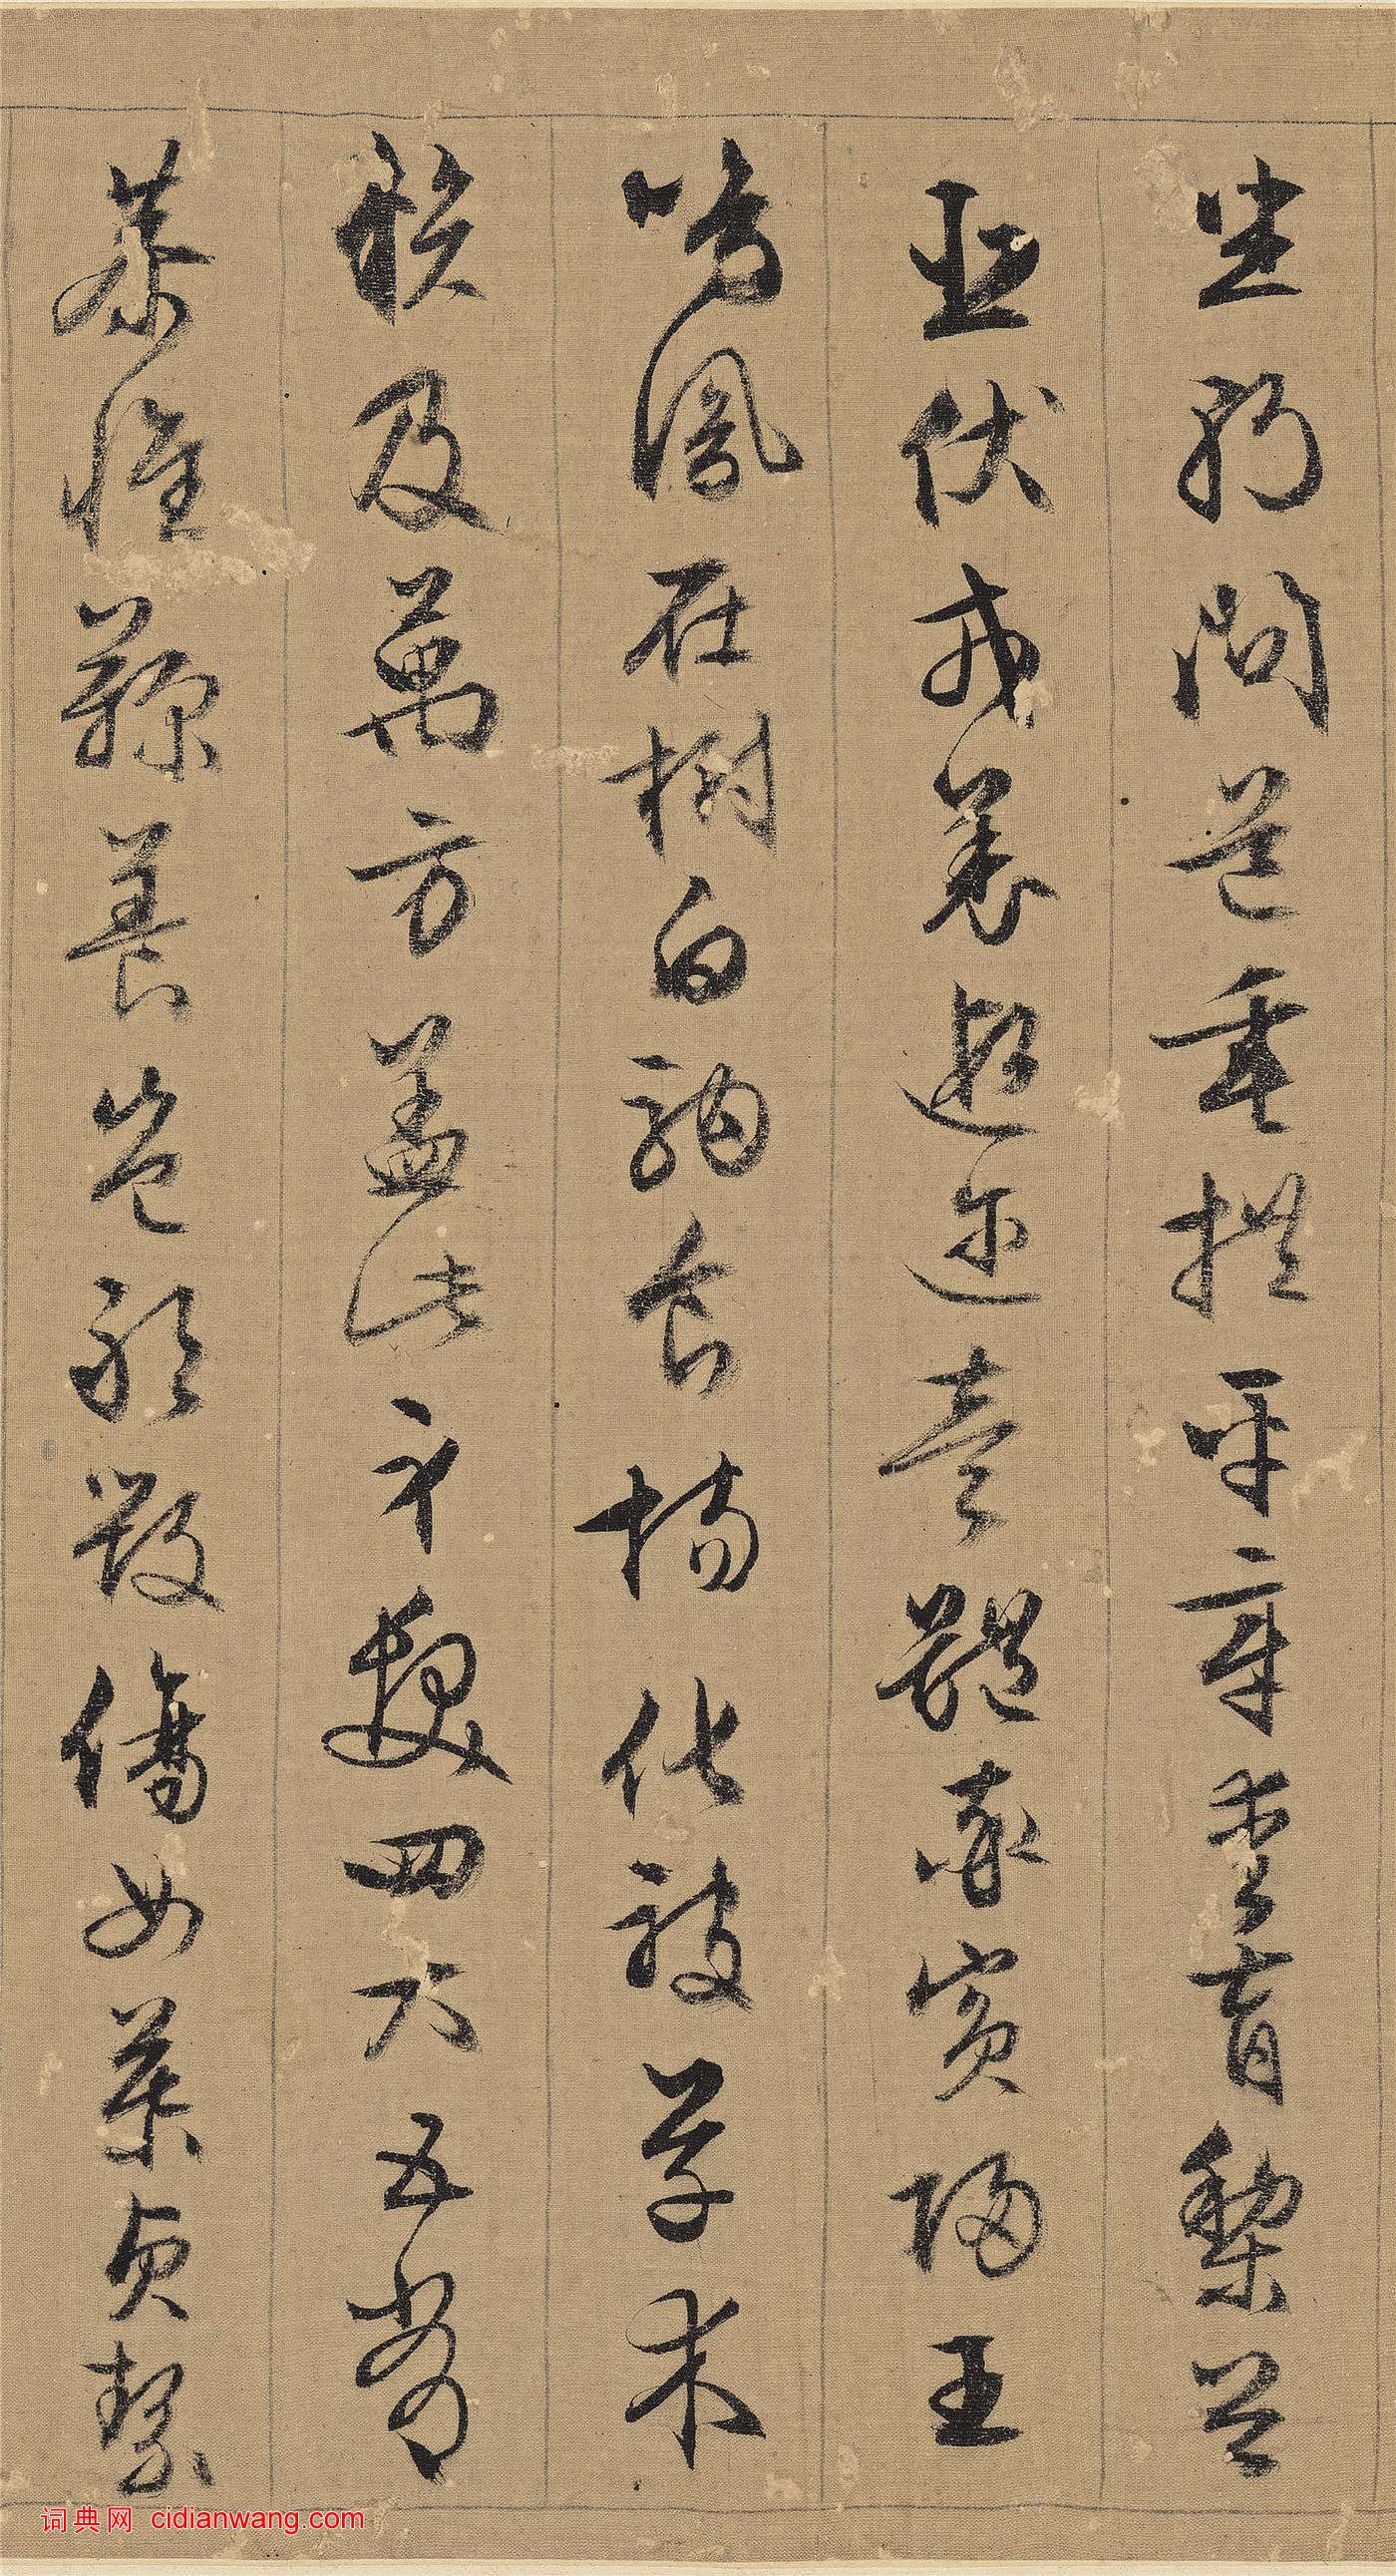 坐朝問道垂拱平章愛育黎首
臣伏戎羌遐迩壹體率賓歸王
鳴鳳在樹白駒食場化被草木
賴及萬方盖此身髮四大五常
恭惟鞠養豈敢毀傷女慕貞絜
词典网 cidianwang.com